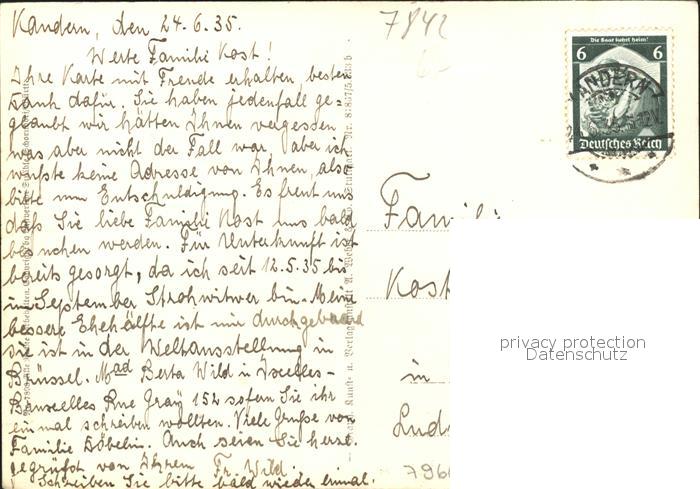 Kandern, den 24.6.35.
Werte Familie Kost!
Ihre Karte mit Freude erhalten besten
Dank dafür. Sie haben jedenfall ge-
glaubt wir hätten Ihnen vergessen
was aber nicht der Fall war aber ich
wußte keine Adresse von Ihnen, also
bitte um Entschuldigung. Es freut uns
daß Sie liebe Familie Kost uns bald
besuchen werden. Für Unterkunft ist
bereits gesorgt, da ich seit 12.5.35 bis
im September Strohwitwer bin. Meine
bessere Ehehälfte ist mir durchgebrannt
sie ist in der Weltausstellung in
Brüssel. Mad Berta Wild in Ixelles-
Bruxelles Rue Gray 152 sofern Sie ihr
einmal schreiben wollten. Viele Grüße von
Familie Döbelin. Auch seien Sie herzl.
gegrüßt von Ihrem Fr. Wild.
Schreiben Sie bitte bald wieder einmal.
7842
6-
Die Saar kehrt heim!
6 6
KANDERN
Deutsches Reich
Familie
Kost
in
privacy protection
Datenschutz